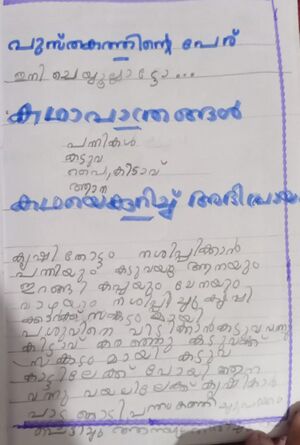 പുസ്തകത്തിന്റെ പേര്
ഇനി ചെയ്യൂല്ലാട്ടോ...
കഥാപാത്രങ്ങൾ
പന്നികൾ
കടുവ
പൈ,കിടാവ്
ആന
കഥയെക്കുറിച്ച് അഭിപ്രായ
കൃഷി തോട്ടം നശിപ്പിക്കാൻ
പന്നിയും കടുവയും ആനയും
ഇറങ്ങി കപ്പയും ചേനയും
വാഴയും നശിപ്പിച്ചു കൃഷി
ക്കാർക്ക് സങ്കടം മായി
പശുവിനെ പിടിക്കാൻ കടുവ വന്നു
കിടാവ് കരഞ്ഞു കടുവക്ക്
സങ്കടം മായി കടുവ
കാട്ടിലേക്ക് പോയി ആന
വന്നു വയലിലേക്ക് കൃഷിക്കാർ
പാട്ട കൊട്ടി പന്തം കത്തിച്ചു